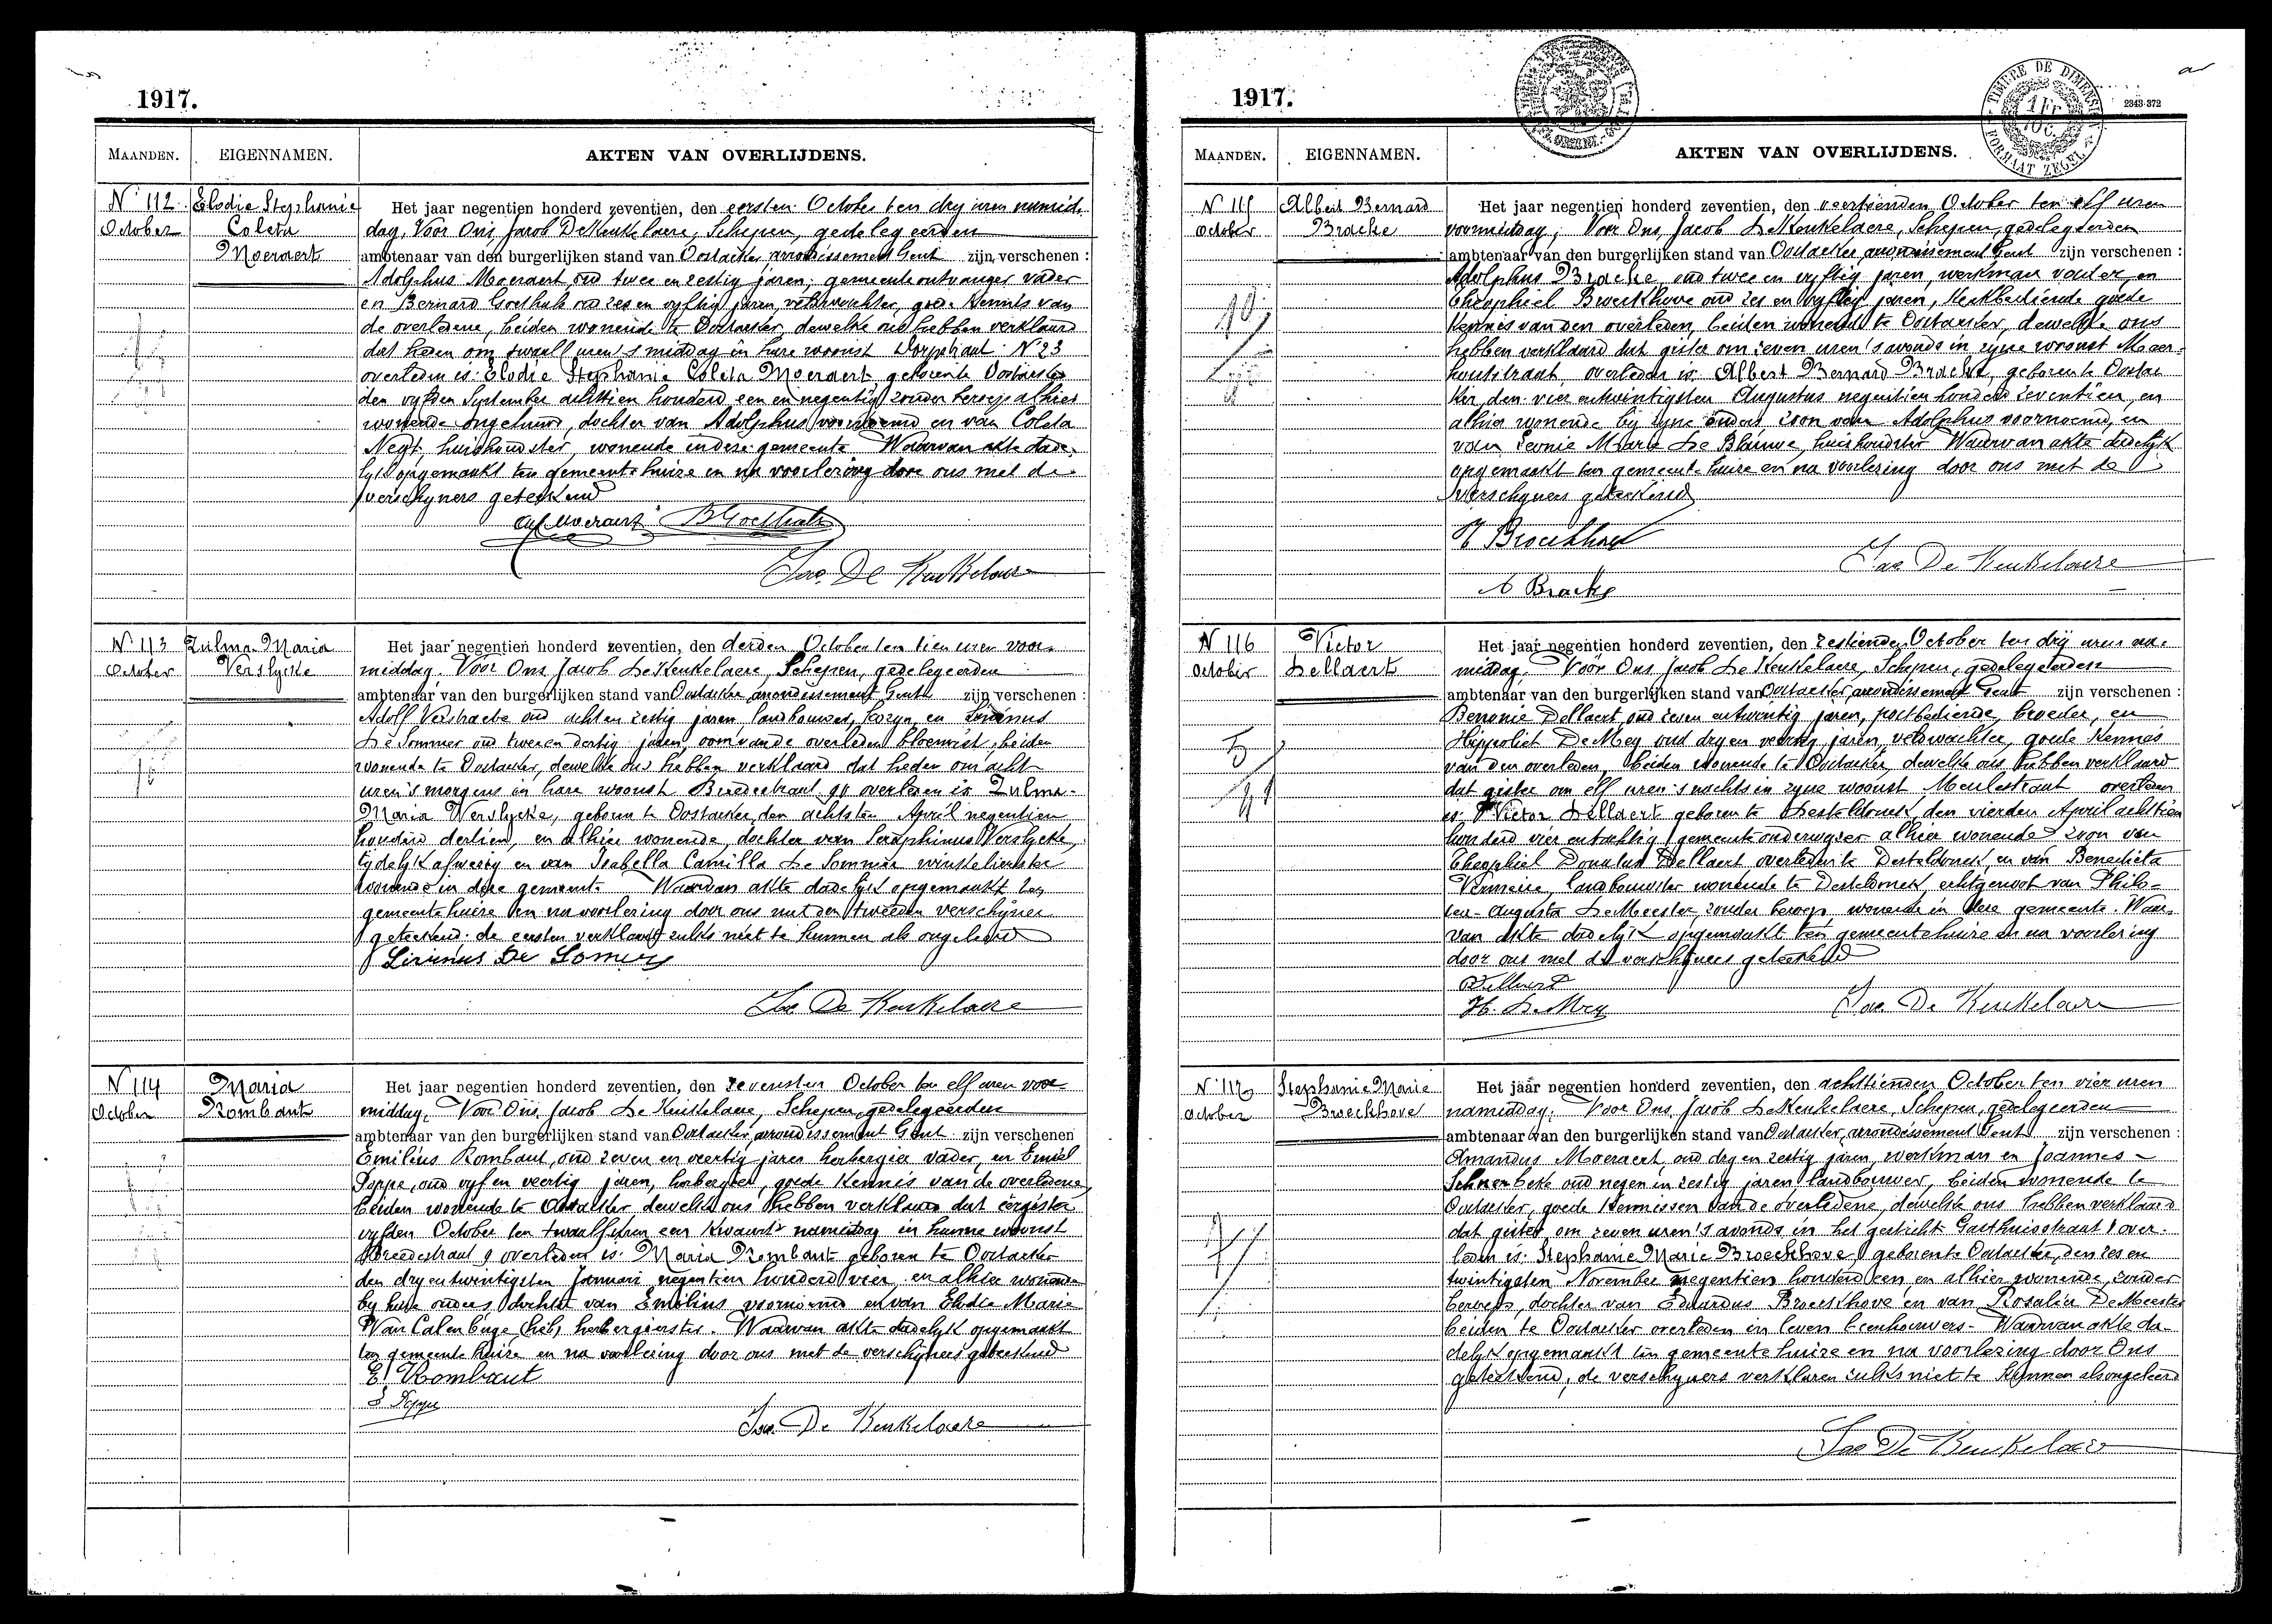 1917.
MAANDEN. EIGENNAMEN. AKTEN VAN OVERLIJDENS.
N° 112 Elodie Stephanie
October Coleta
Moeraert
Het jaar negentien honderd zeventien, den eersten October ten dry uren namid-
dag, Voor Ons, Jacob De Keukelaere, Schepen, gedelegeerden
ambtenaar van den burgerlijken stand van Oostacker, arrondissement Gent zijn verschenen :
Adolphus Moeraert, oud twee en zestig jaren, gemeenteontvanger vader
en Bernard Goethals oud zes en vyftig jaren, veldwachter, goede kennis van
de overledene, beiden wonende te Oostacker, dewelke ons hebben verklaard
dat heden om twaalf uren 's middag in hare woonst Dorpstraat N° 23
overleden is: Elodie Stephanie Coleta Moeraert, geboren te Oostacker
den vyfden September achttien honderd een en negentig, zonder beroep alhier
wonende ongehuwd, dochter van Adolphus voornoemd en van Coleta
Neyt, huishoudster, wonende in deze gemeente Waarvan akte dade-
lyk opgemaakt ten gemeentehuize en na voorlezing door ons met de
verschyners geteekend
Ad. Moeraert B Goethals
Jac. De Keukelaere
N° 113 Zulma Maria
October Verslycke
Het jaar negentien honderd zeventien, den derden October ten tien uren voor-
middag, Voor Ons Jacob De Keukelaere, Schepen, gedelegeerden
ambtenaar van den burgerlijken stand van Oostacker arrondissement Gent zijn verschenen :
Adolf Verstraete oud acht en zestig jaren, landbouwer, kozyn, en Livinus
De Sommer oud twee en dertig jaren, oom van de overleden bloemist, beiden
wonende te Oostacker, dewelke ons hebben verklaard dat heden om acht
uren 's morgens in hare woonst Breedestraat 90 overleden is Zulma
Maria Verslycke, geboren te Oostacker, den achtsten April negentien
honderd dertien, en alhier wonende, dochter van Seraphinus Verslycke,
tydelyk afwezig en van Isabella Camilla De Sommer winkelierster
wonende in deze gemeente Waarvan akte dadelyk opgemaakt ten
gemeentehuize en na voorlezing door ons met den tweeden verschyner
geteekend, de eersten verklaard zulks niet te kunnen als ongeleerd
Livinus De Somers
Jac. De Keukelaere
N° 114 Maria
October Rombaut
Het jaar negentien honderd zeventien, den zevensten October ten elf uren voor
middag, Voor Ons, Jacob De Keukelaere, Schepen, gedelegeerden
ambtenaar van den burgerlijken stand van Oostacker, arrondissement Gent zijn verschenen
Emilius Rombaut, oud zeven en veertig jaren herbergier vader, en Emiel
oud vyf en veertig jaren, herbergier, goede kennis van de overledene,
beiden wonende te Oostacker dewelke ons hebben verklaard dat eergister
vyfden October ten twaalf uren een kwaart namiddag in hunne woonst
Breedestraat 9 overleden is: Maria Rombaut geboren te Oostacker
den dry en twintigsten Januari negentien honderd vier en alhier wonende
by hare ouders dochter van Emilius voornoemd en van Elodie Marie
Van herbergierster. Waarvan akte dadelyk opgemaakt
ten gemeente huize en na voorlezing door ons met de verschyners geteekend
E. Rombaut
Jac. De Keukelaere
1917.
TIMBRE DE DIMENSION
1 Fr
10c.
FORMAAT ZEGEL
2343-372
MAANDEN. EIGENNAMEN. AKTEN VAN OVERLIJDENS.
N° 115 Albert Bernard
October Bracke
Het jaar negentien honderd zeventien, den veertienden October ten elf uren
voormiddag, Voor Ons, Jacob De Keukelaere, Schepen, gedelegeerden
ambtenaar van den burgerlijken stand van Oostacker, arrondissement Gent zijn verschenen :
Adolphus Bracke, oud twee en vyftig jaren, werkman vader, en
Theophiel Broeckhove oud zes en vyftig jaren, kerkbediende goede
kennis van den overleden, beiden wonende te Oostacker, dewelke ons
hebben verklaard dat gister om zeven uren 's avonds in zyne woonst Meer-
houtstraat, overleden is: Albert Bernard Bracke, geboren te Oostac-
ker, den vier en twintigsten Augustus negentien honderd zeventien, en
alhier wonende by zyne ouders zoon van Adolphus voornoemd, en
van Leonie Marie De Blauwe, huishoudster Waarvan akte dadelyk
opgemaakt ten gemeente huize en na voorlezing door ons met de
verschyners geteekend
Broeckhove
Jac De Keukelaere
A Bracke
N° 116 Victor
October Dellaert
Het jaar negentien honderd zeventien, den zestienden October ten drij uren na-
middag, Voor Ons Jacob De Keukelaere, Schepen, gedelegeerden
ambtenaar van den burgerlijken stand van Oostacker, arrondissement Gent zijn verschenen :
Benonie Dellaert, oud zeven en twintig jaren, postbediende, broeder, en
Hippoliet De Mey oud dry en veertig jaren, veldwachter, goede kennis
van den overleden, beiden wonende te Oostacker, dewelke ons hebben verklaard
dat gister om elf uren 's nachts in zyne woonst Meulestraat overleden
is: Victor Dellaert geboren te Desteldonck, den vierden April achttien
honderd vier en tachtig, gemeente onderwyzer alhier wonende zoon van
Theophiel Donatus Dellaert overleden te Desteldonck, en van Benedicta
Vermeire, landbouwster wonende te Desteldonck, echtgenoot van Philo-
Augusta De Meester, zonder beroep, wonende in deze gemeente. Waar-
van akte dadelyk opgemaakt ten gemeentehuize en na voorlezing
door ons met de verschyners geteekend
Dellaert
H. De Mey Jac. De Keukelaere
N° 117 Stephanie Marie
October Broeckhove
Het jaar negentien honderd zeventien, den achttienden October ten vier uren
namiddag, Voor Ons, Jacob De Keukelaere, Schepen, gedelegeerden
ambtenaar van den burgerlijken stand van Oostacker, arrondissement Gent zijn verschenen :
Amandus Moeraert, oud dry en zestig jaren, werkman en Joannes
oud negen en zestig jaren landbouwer, beiden wonende te
Oostacker, goede kennissen van de overledene, dewelke ons hebben verklaard
dat gister om zeven uren 's avonds in het gesticht Gasthuisstraat 1 over-
leden is: Stephanie Marie Broeckhove, geboren te Oostacker, den zes en
twintigsten November negentien honderd een, en alhier wonende, zonder
beroep, dochter van Eduardus Broeckhove en van Rosalia De Meester
beiden te Oostacker overleden in leven Waarvan akte da-
delyk opgemaakt ten gemeente huize en na voorlezing door Ons
geteekend, de verschyners verklaren zulks niet te kunnen als ongeleerd
Jac De Keukelaere